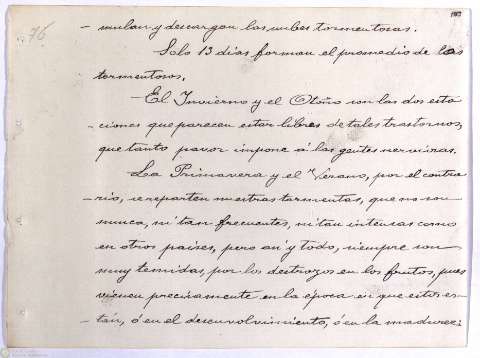 76
- mulan y descargan las nubes tormentosas.
Solo 13 dias forman el promedio de los
tormentosos.
- El Invierno y el Otoño son las dos esta
- ciones que parecen estar libres de tales trastornos,
que tanto pavor impone á las gentes nerviosas.
La Primavera y el Verano, por el contra
- rio, se reparten nuestras tormentas, que no son
nunca, ni tan frecuentes, ni tan intensas como
en otros paises, pero asi y todo, siempre son
muy temidas, por los destrozos en los frutos, pues
vienen precisamente en la época en que estos es-
tán, ó en el desenvolvimiento, ó en la madurez;